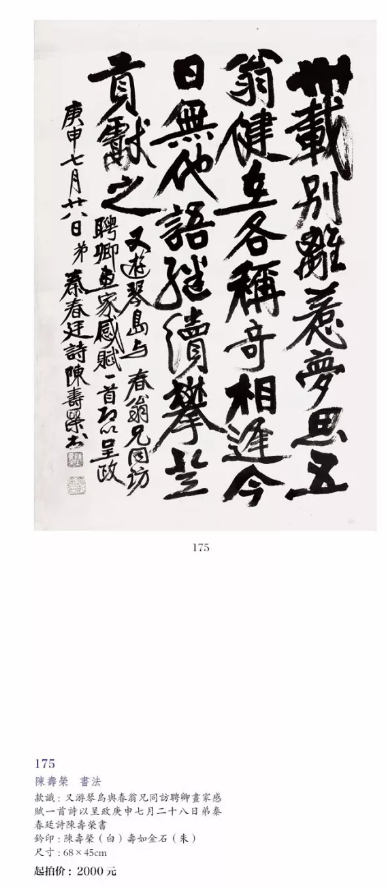 卅載別離惹夢思五
翁健在各稱奇相逢今
日無他語繼續攀登
貢獻之
又遊琴島与春翁兄同坊
聘卿畫家感賦一首以呈政
庚申七月廿八日弟秦春廷詩陳壽榮书
175
175
陳壽榮 書法
款識：又游琴島與春翁兄同訪聘卿畫家感
賦一首詩以呈政庚申七月二十八日弟秦
春廷詩陳壽榮書
鈐印：陳壽榮（白）壽如金石（朱）
尺寸：68×45cm
起拍价：2000 元